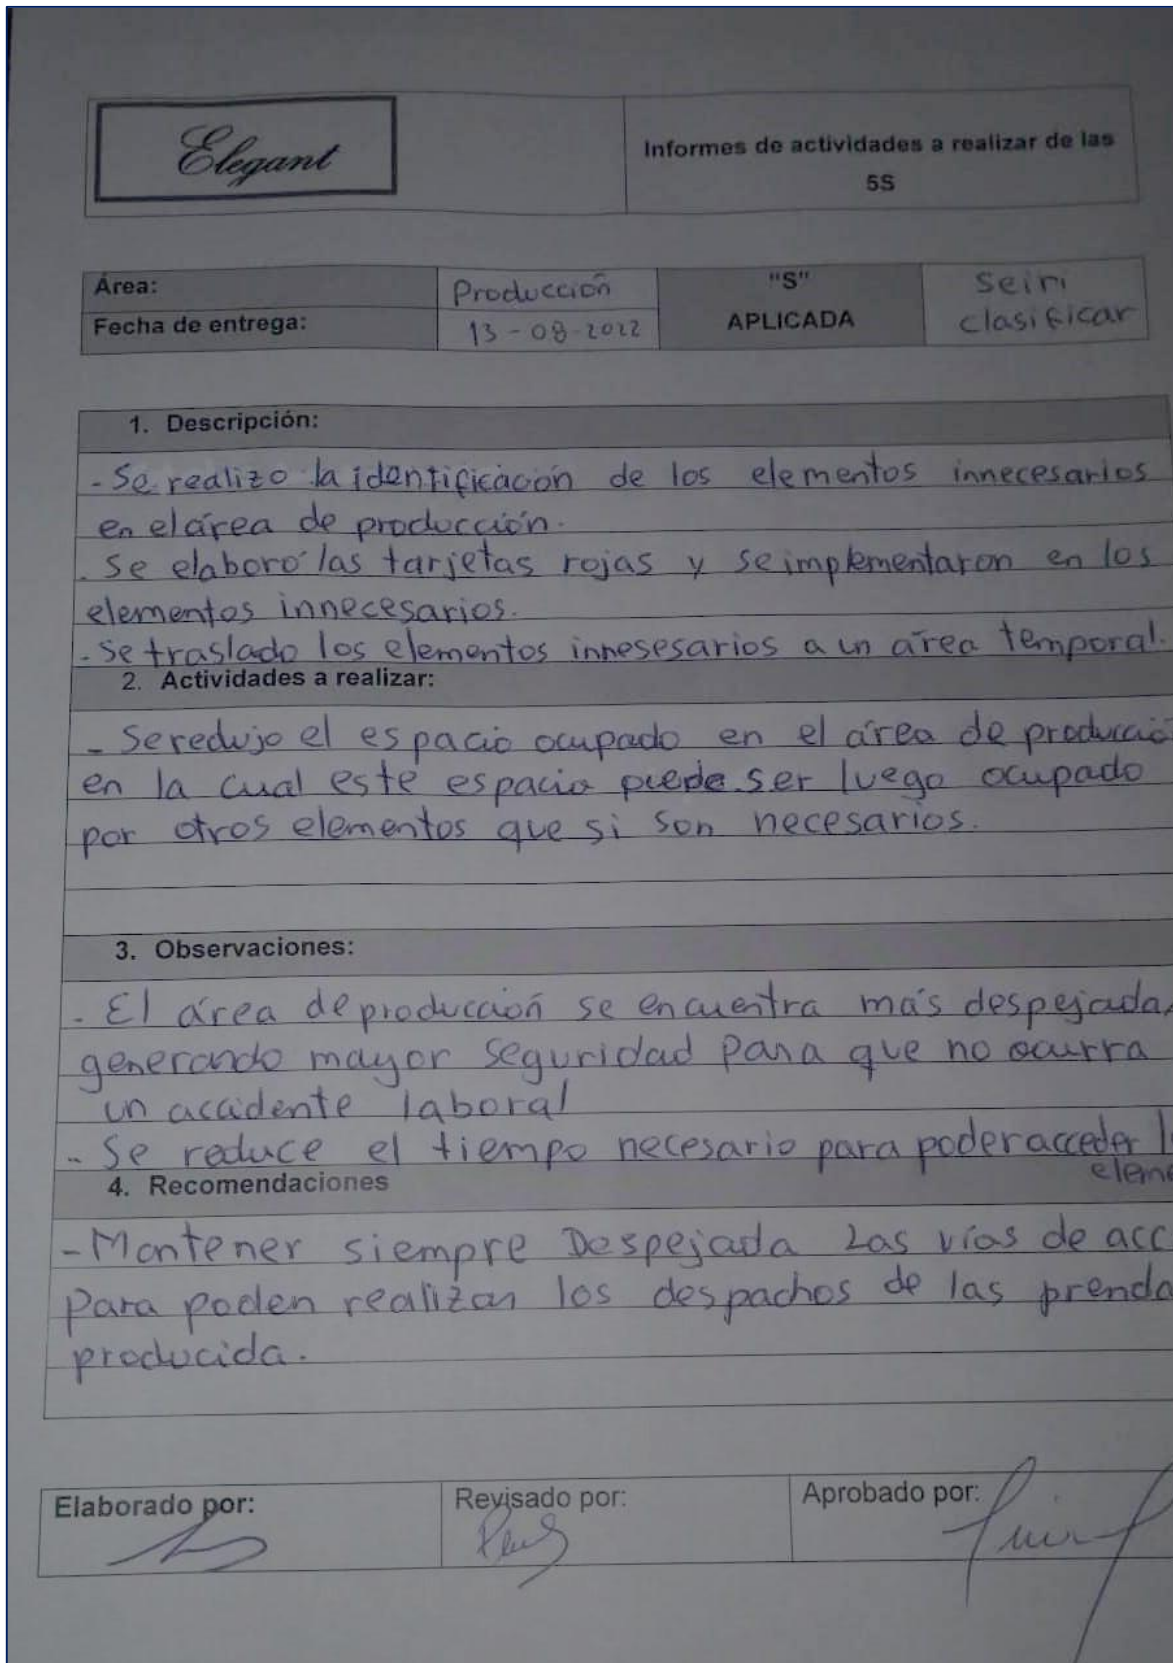 Elegant
Informes de actividades a realizar de las
5S
Área:
Producción
"S"
APLICADA
Seiri
clasificar
Fecha de entrega:
13-08-2022
1. Descripción:
- Se realizo la identificación de los elementos innecesarios
en el área de producción.
. Se elaboró las tarjetas rojas y se implementaron en los
elementos innecesarios.
- Se traslado los elementos innesesarios a un área temporal.
2. Actividades a realizar:
- Se redujo el espacio ocupado en el área de producció
en la cual este espacio puede ser luego ocupado
por otros elementos que si son necesarios.
3. Observaciones:
- El área de producción se encuentra más despejada,
generando mayor seguridad para que no ocurra
un accidente laboral
- Se reduce el tiempo necesario para poder acceder l
eleme
4. Recomendaciones
- Mantener siempre Despejada Las vías de acc
Para poder realizar los despachos de las prenda
producida.
Elaborado por:
Revisado por:
Aprobado por: